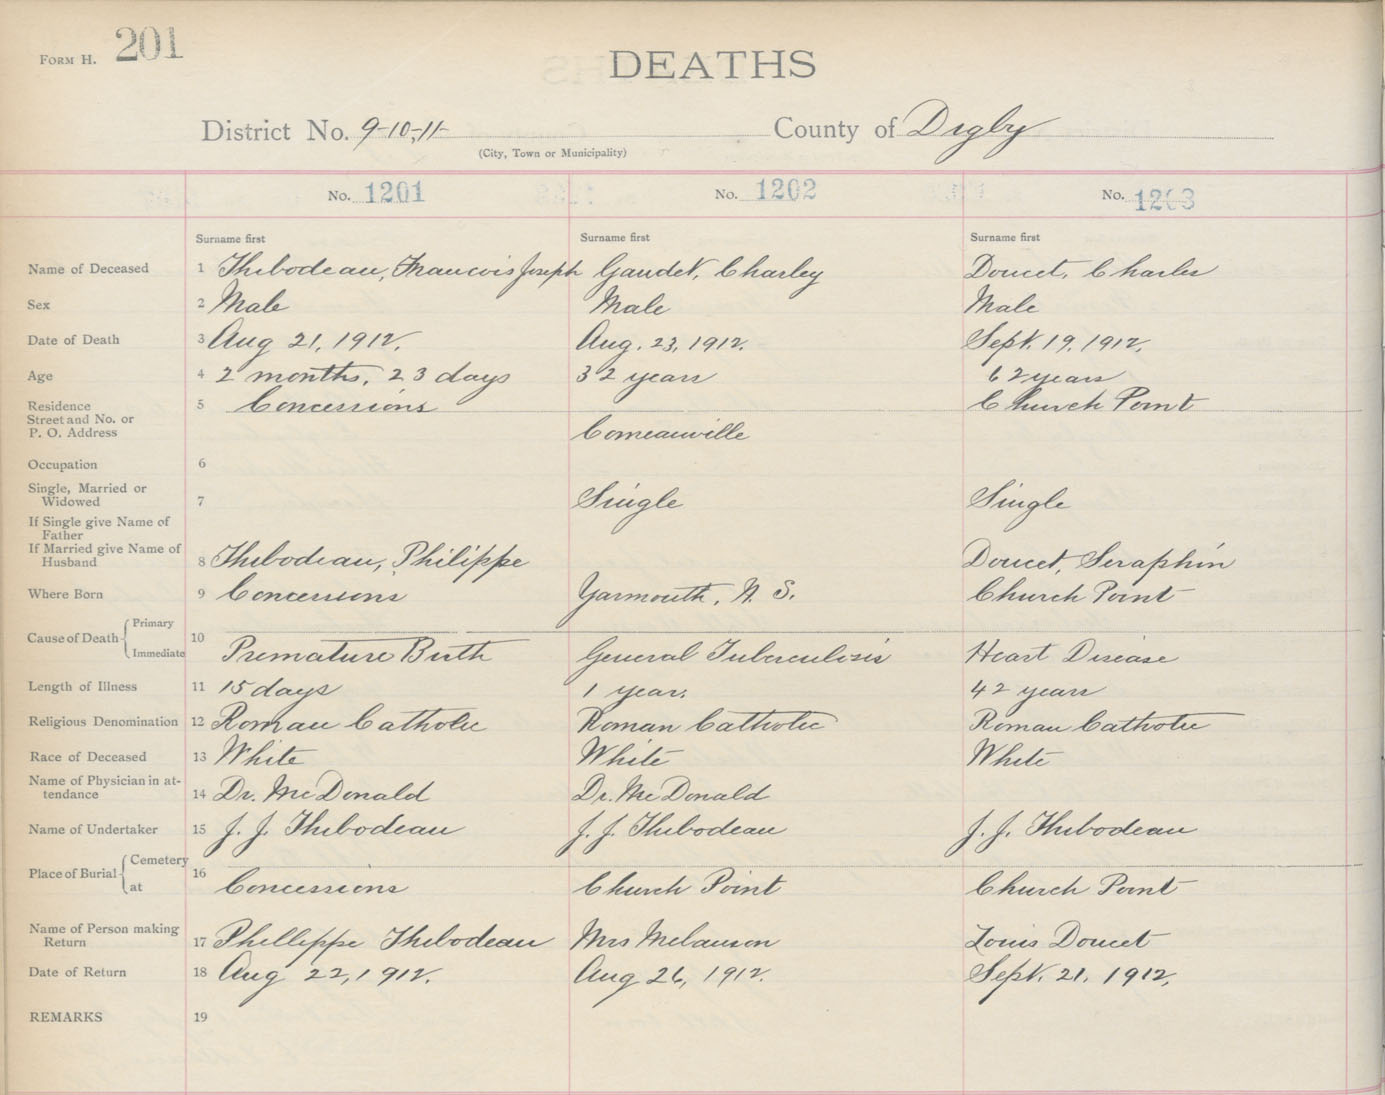 FORM H. 201
DEATHS
District No. 9-10,-11- County of Digby
(City, Town or Municipality)
No. 1201 No. 1202 No. 1203
Surname first Surname first Surname first
Name of Deceased 1 Thibodeau, Francois Joseph Gaudet, Charley Doucet, Charles
Sex 2 Male Male Male
Date of Death 3 Aug 21, 1912. Aug. 23, 1912. Sept. 19, 1912.
Age 4 2 months, 23 days 32 years 62 years
Residence 5 Concessions Church Point
Street and No. or
P. O. Address Comeauville
Occupation 6
Single, Married or
Widowed 7 Single Single
If Single give Name of
Father
If Married give Name of
Husband 8 Thibodeau, Philippe Doucet, Seraphin
Where Born 9 Concessions Yarmouth, N. S. Church Point
Primary
Cause of Death 10
Immediate Premature Birth General Tuberculosis Heart Disease
Length of Illness 11 15 days 1 year. 42 years
Religious Denomination 12 Roman Catholic Roman Catholic Roman Catholic
Race of Deceased 13 White White White
Name of Physician in at-
tendance 14 Dr. McDonald Dr. McDonald
Name of Undertaker 15 J. J. Thibodeau J. J. Thibodeau J. J. Thibodeau
Cemetery
Place of Burial 16
at Concessions Church Point Church Point
Name of Person making
Return 17 Phillippe Thibodeau Mrs Melanson Louis Doucet
Date of Return 18 Aug 22, 1912. Aug 26, 1912. Sept. 21, 1912.
REMARKS 19